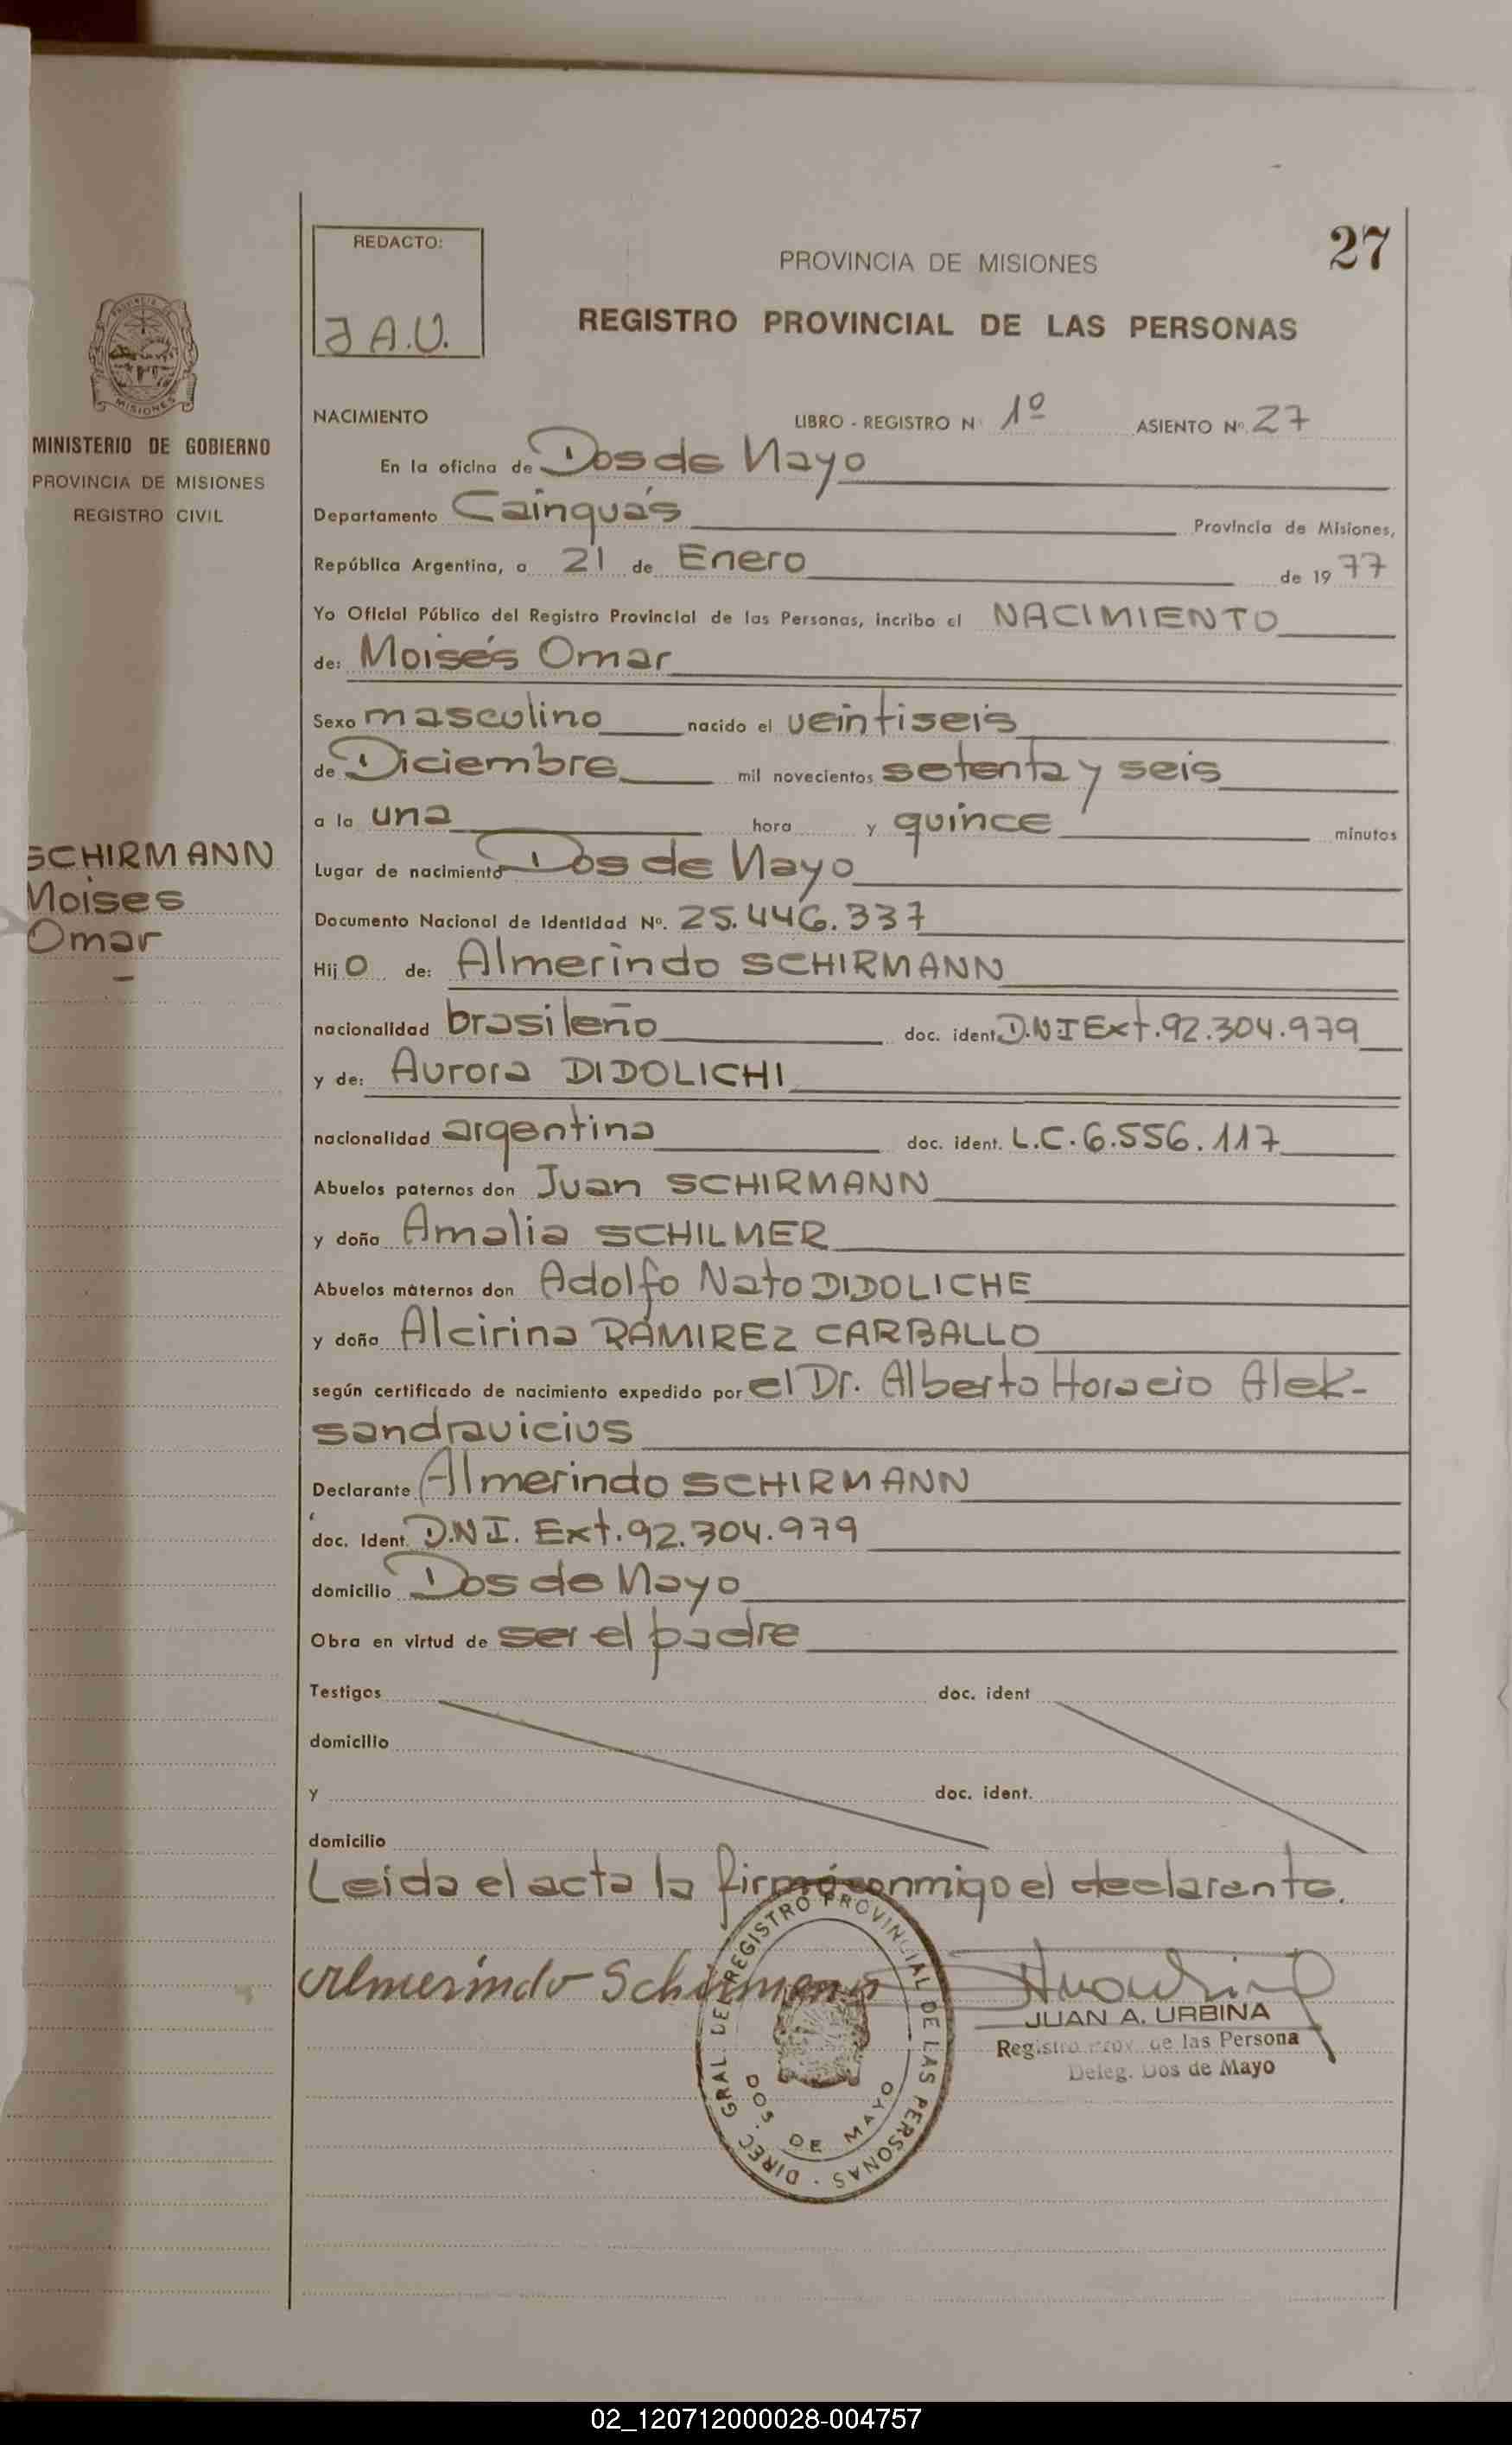 27
REDACTO:
J A.U.
PROVINCIA DE MISIONES
REGISTRO PROVINCIAL DE LAS PERSONAS
PROVINCIA
MISIONES
MINISTERIO DE GOBIERNO
PROVINCIA DE MISIONES
REGISTRO CIVIL
SCHIRMANN
Moises
Omar
NACIMIENTO LIBRO - REGISTRO N 1º ASIENTO Nº. 27
En la oficina de Dos de Mayo
Departamento Cainguás Provincia de Misiones,
República Argentina, a 21 de Enero de 19 77
Yo Oficial Público del Registro Provincial de las Personas, incribo el NACIMIENTO
de: Moisés Omar
Sexo masculino nacido el veintiseis
de Diciembre mil novecientos setenta y seis
a la una hora y quince minutos
Lugar de nacimiento Dos de Mayo
Documento Nacional de Identidad Nº. 25.446.337
Hij o de: Almerindo SCHIRMANN
nacionalidad brasileño doc. ident. D.N.I Ext. 92.304.979
y de: Aurora DIDOLICHI
nacionalidad argentina doc. ident. L.C. 6.556.117
Abuelos paternos don Juan SCHIRMANN
y doña Amalia SCHILMER
Abuelos maternos don Adolfo Nato DIDOLICHE
y doña Alcirina RAMIREZ CARBALLO
según certificado de nacimiento expedido por el Dr. Alberto Horacio Alek-
sandravicius
Declarante Almerindo SCHIRMANN
doc. Ident. D.N.I. Ext. 92.304.979
domicilio Dos de Mayo
Obra en virtud de ser el padre
Testigos doc. ident
domicilio
y doc. ident.
domicilio
Leida el acta la firmó conmigo el declarante.
Almerindo Schirmann
JUAN A. URBINA
Registro Prov de las Persona
Deleg. Dos de Mayo
DIREC GRAL. DEL REGISTRO PROVINCIAL DE LAS PERSONAS
DOS DE MAYO
02_120712000028-004757